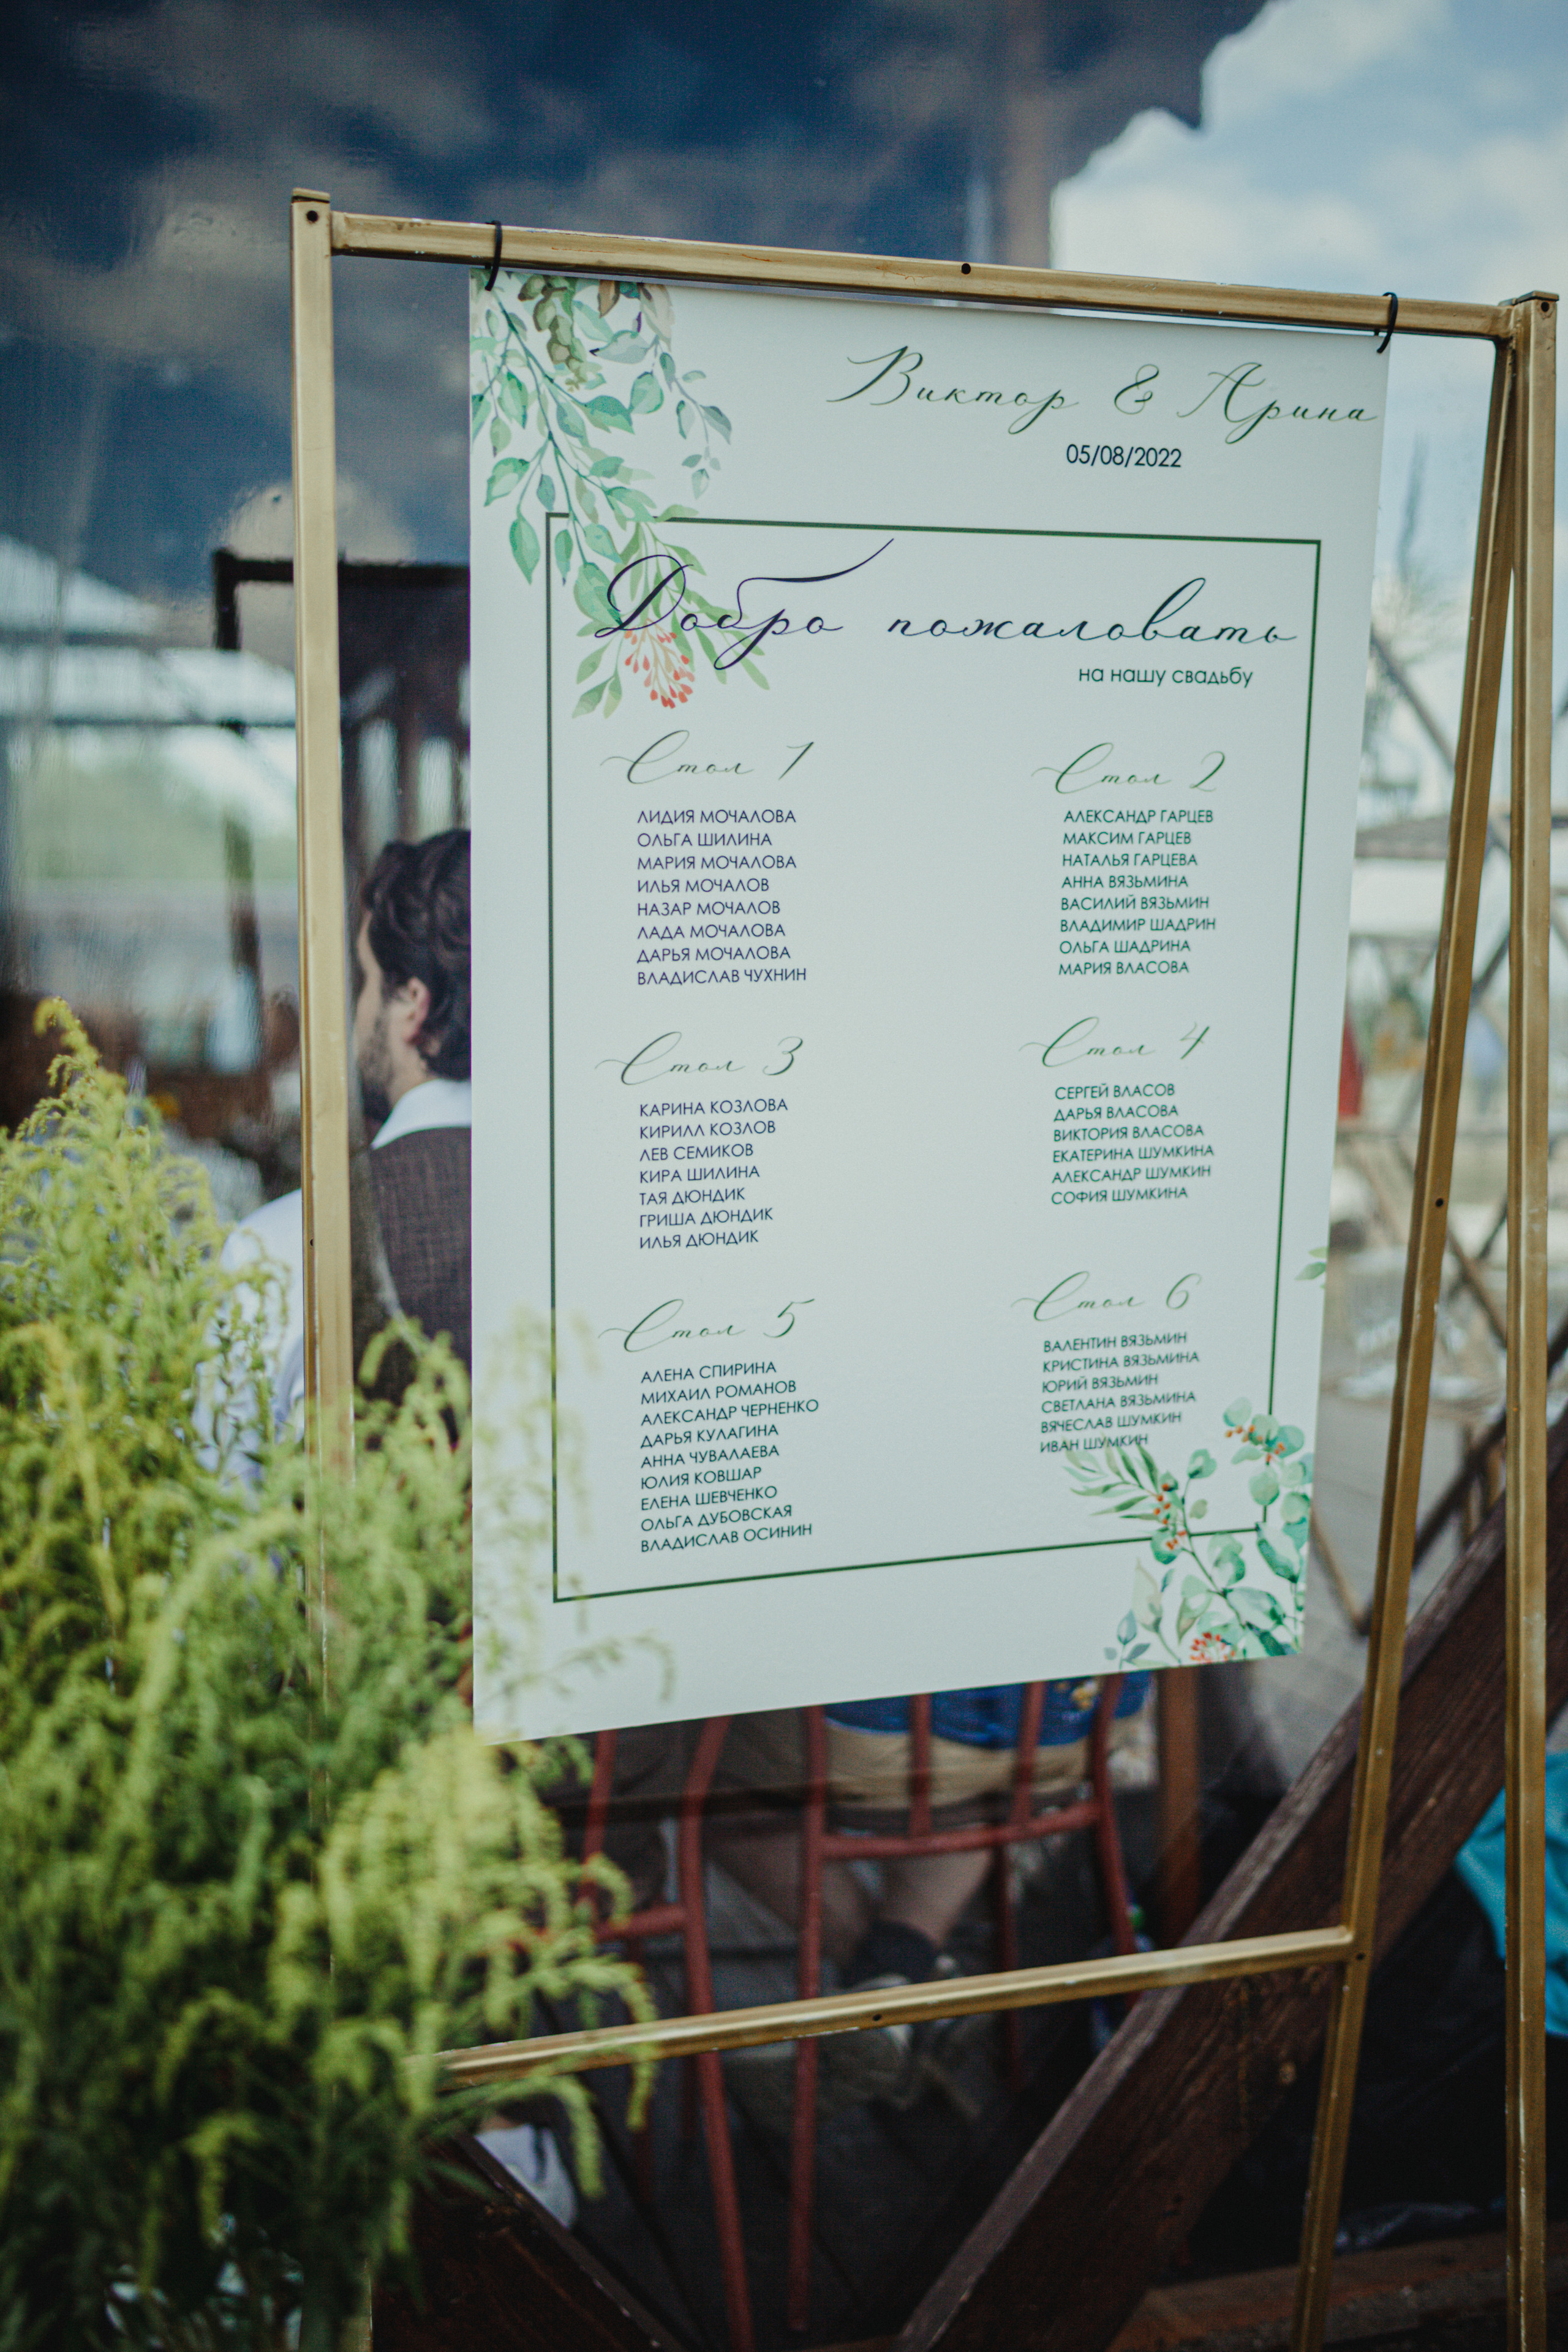 Виктор & Арина
05/08/2022
Добро пожаловать
на нашу свадьбу
Стол 1
ЛИДИЯ МОЧАЛОВА
ОЛЬГА ШИЛИНА
МАРИЯ МОЧАЛОВА
ИЛЬЯ МОЧАЛОВ
НАЗАР МОЧАЛОВ
ЛАДА МОЧАЛОВА
ДАРЬЯ МОЧАЛОВА
ВЛАДИСЛАВ ЧУХНИН
Стол 2
АЛЕКСАНДР ГАРЦЕВ
МАКСИМ ГАРЦЕВ
НАТАЛЬЯ ГАРЦЕВА
АННА ВЯЗЬМИНА
ВАСИЛИЙ ВЯЗЬМИН
ВЛАДИМИР ШАДРИН
ОЛЬГА ШАДРИНА
МАРИЯ ВЛАСОВА
Стол 3
КАРИНА КОЗЛОВА
КИРИЛЛ КОЗЛОВ
ЛЕВ СЕМИКОВ
КИРА ШИЛИНА
ТАЯ ДЮНДИК
ГРИША ДЮНДИК
ИЛЬЯ ДЮНДИК
Стол 4
СЕРГЕЙ ВЛАСОВ
ДАРЬЯ ВЛАСОВА
ВИКТОРИЯ ВЛАСОВА
ЕКАТЕРИНА ШУМКИНА
АЛЕКСАНДР ШУМКИН
СОФИЯ ШУМКИНА
Стол 5
АЛЕНА СПИРИНА
МИХАИЛ РОМАНОВ
АЛЕКСАНДР ЧЕРНЕНКО
ДАРЬЯ КУЛАГИНА
АННА ЧУВАЛАЕВА
ЮЛИЯ КОВШАР
ЕЛЕНА ШЕВЧЕНКО
ОЛЬГА ДУБОВСКАЯ
ВЛАДИСЛАВ ОСИНИН
Стол 6
ВАЛЕНТИН ВЯЗЬМИН
КРИСТИНА ВЯЗЬМИНА
ЮРИЙ ВЯЗЬМИН
СВЕТЛАНА ВЯЗЬМИНА
ВЯЧЕСЛАВ ШУМКИН
ИВАН ШУМКИН